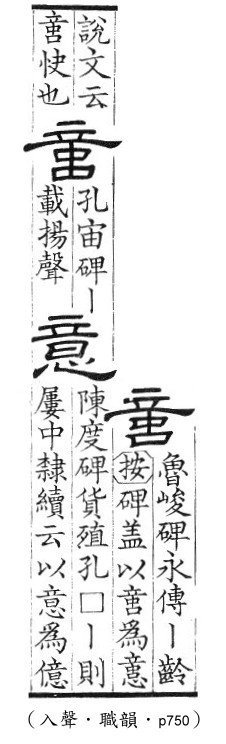 𠶷
魯峻碑永傳丨齡
按碑蓋以𠶷爲意
說文云
𠶷快也
𠶷
孔宙碑丨
載揚聲
意
陳度碑貨殖孔□丨則
屢中隸續云以意爲億
（入聲·職韻·p750）